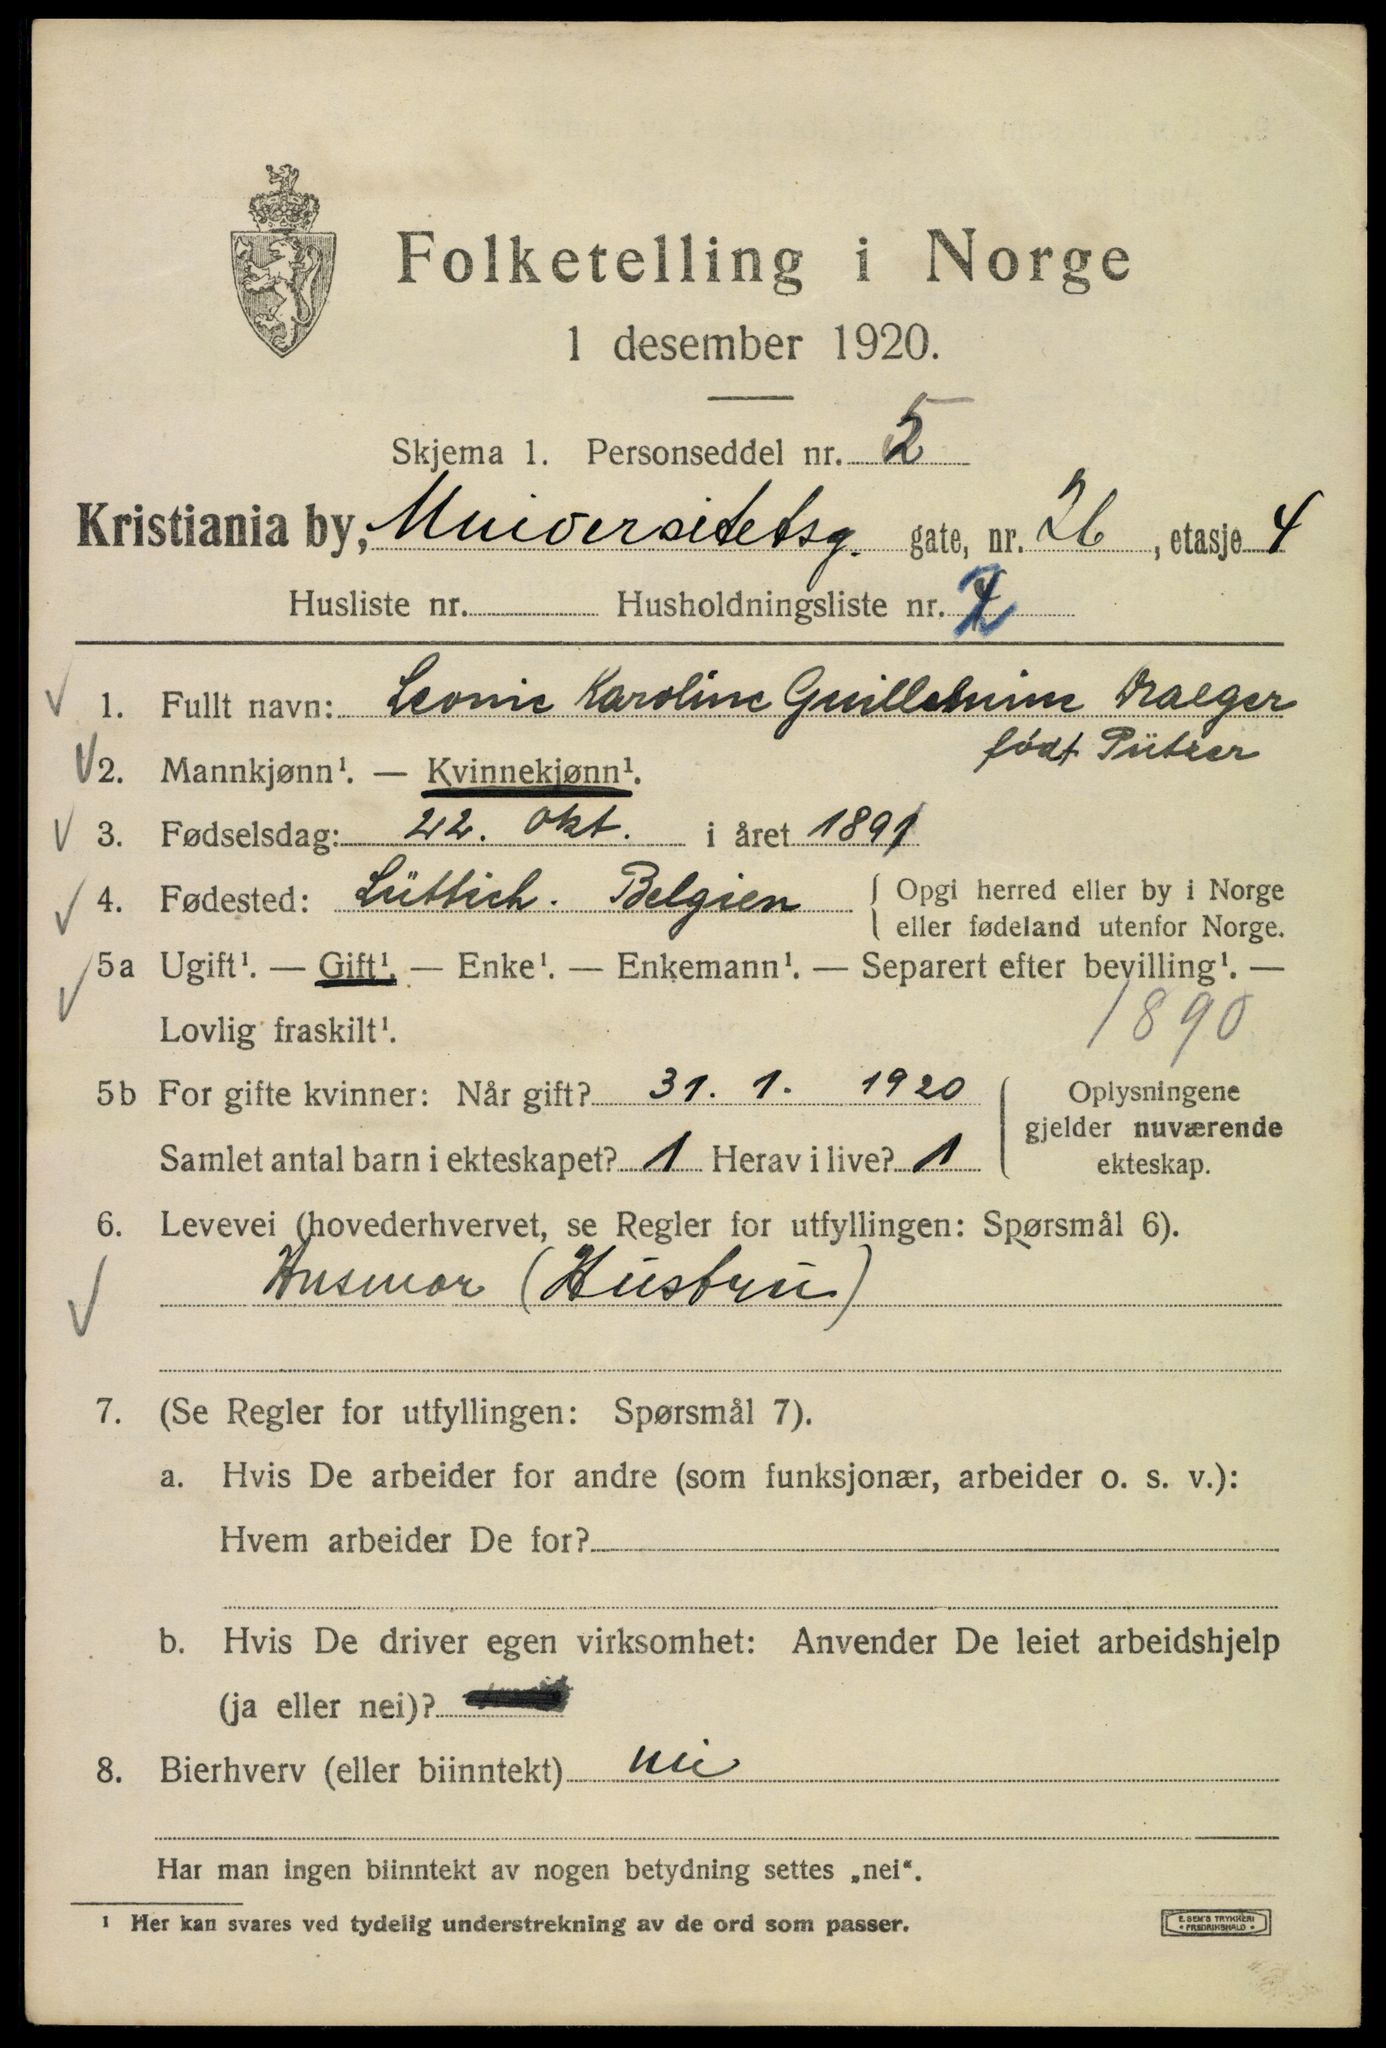 Folketelling i Norge
1 desember 1920.
Skjema 1. Personseddel nr. 5
Kristiania by, Universitetsg. gate, nr. 26, etasje 4
Husliste nr. Husholdningsliste nr.
1. Fullt navn: Leonie Karoline Guillelmine Draeger
født Pützer
2. Mannkjønn¹. — Kvinnekjønn¹.
3. Fødselsdag: 22. Okt. i året 1891
4. Fødested: Lüttich. Belgien { Opgi herred eller by i Norge
eller fødeland utenfor Norge.
5a Ugift¹. — Gift¹. — Enke¹. — Enkemann¹. — Separert efter bevilling¹. —
Lovlig fraskilt¹. 1890
5b For gifte kvinner: Når gift? 31. 1. 1920 { Oplysningene
gjelder nuværende
Samlet antal barn i ekteskapet? 1 Herav i live? 1 ekteskap.
6. Levevei (hovederhvervet, se Regler for utfyllingen: Spørsmål 6).
Husmor (Husfru)
7. (Se Regler for utfyllingen: Spørsmål 7).
a. Hvis De arbeider for andre (som funksjonær, arbeider o. s. v.):
Hvem arbeider De for?
b. Hvis De driver egen virksomhet: Anvender De leiet arbeidshjelp
(ja eller nei)?
8. Bierhverv (eller biinntekt) nei
Har man ingen biinntekt av nogen betydning settes „nei“.
¹ Her kan svares ved tydelig understrekning av de ord som passer.
E. SEM'S TRYKKERI
• FREDRIKSHALD •